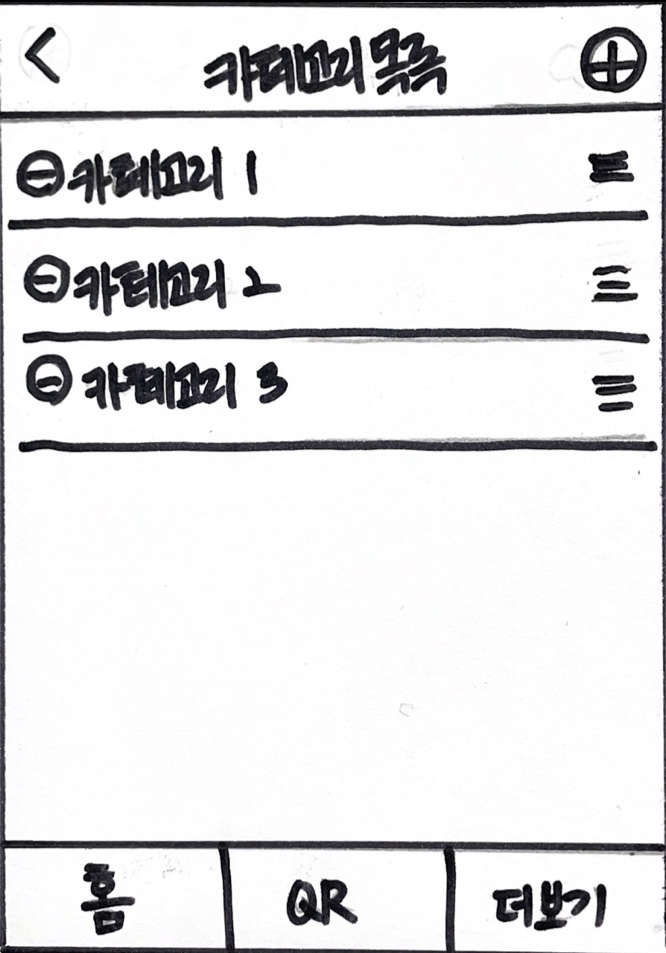 카테고리 목록
카테고리 1
카테고리 2
카테고리 3
홈 QR 더보기